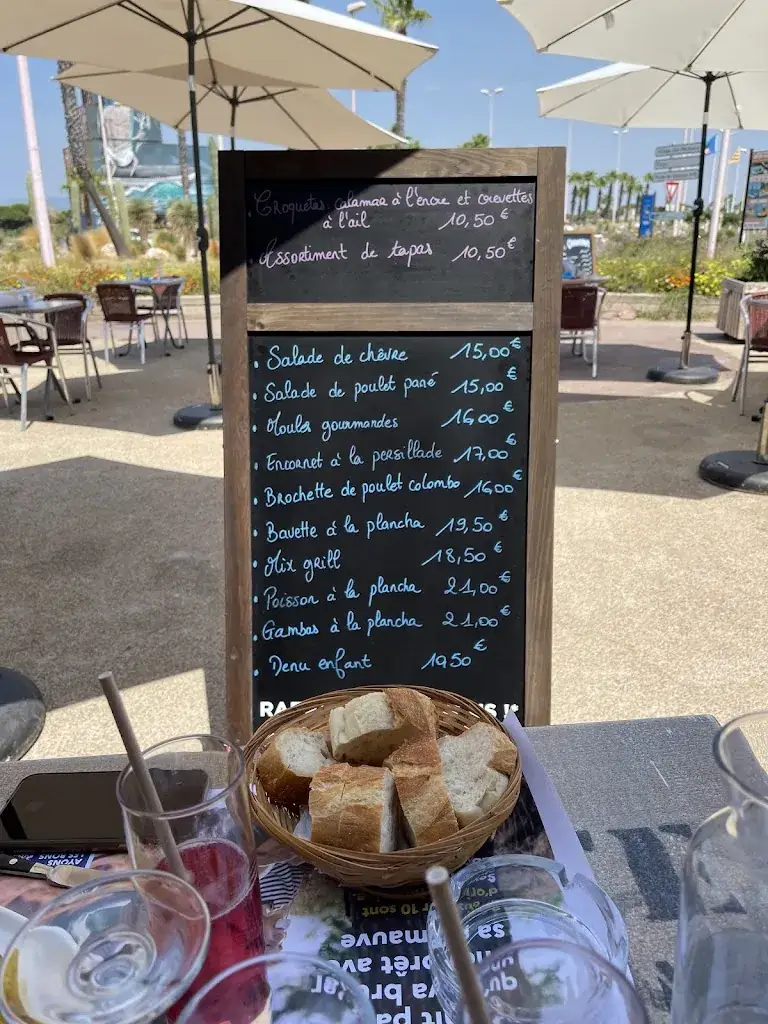 Croquetas: calamar à l'encre et crevettes
à l'ail 10,50€
Assortiment de tapas 10,50€
• Salade de chêvre 15,00€
• Salade de poulet pané 15,00€
• Moules gourmandes 16,00€
• Encornet à la persillade 17,00€
• Brochette de poulet colombo 16,00€
• Bavette à la plancha 19,50€
• Mix grill 18,50€
• Poisson à la plancha 21,00€
• Gambas à la plancha 21,00€
• Menu enfant 10,50€
AYONS
10 sont
mauve
sa